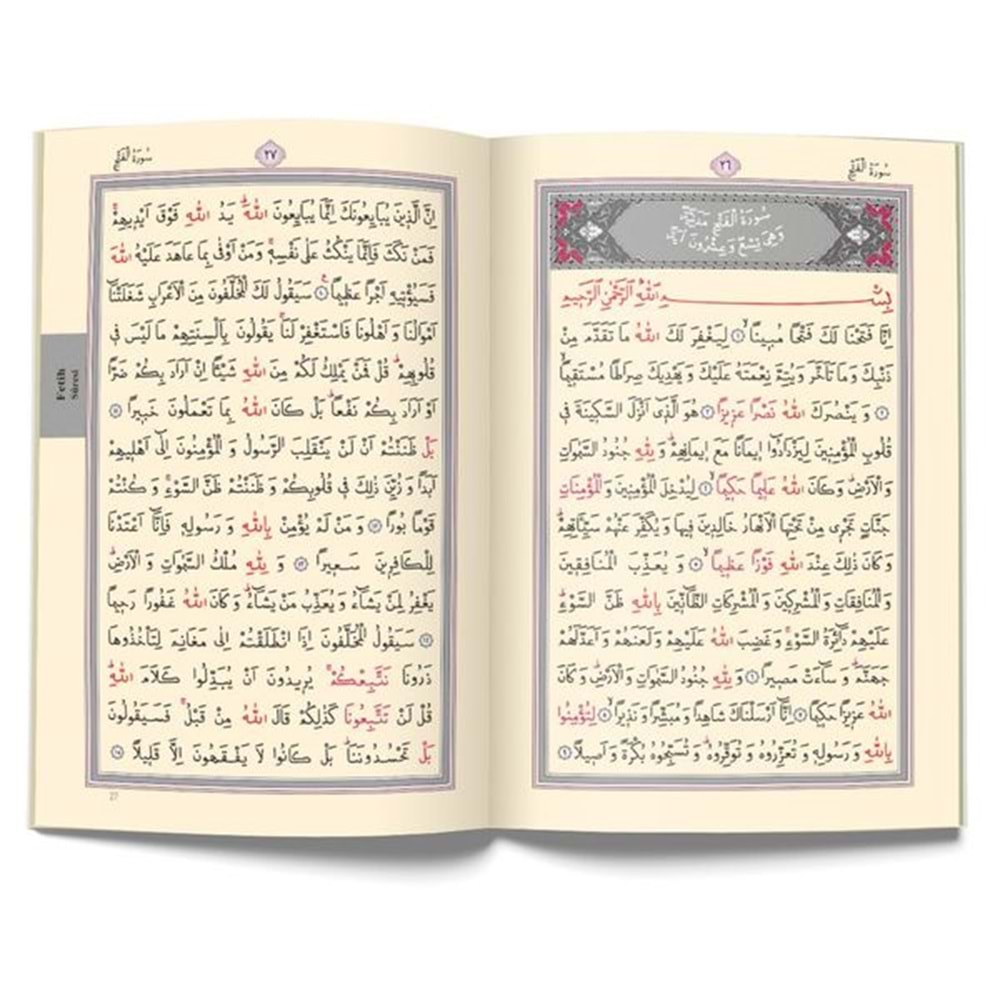 سُورَةُ الْفَتْحِ
٢٦
سُورَةُ الْفَتْحِ مَدَنِيَّةٌ
وَهِيَ تِسْعٌ وَعِشْرُونَ اٰيَةً
بِسْمِ اللّٰهِ الرَّحْمٰنِ الرَّحِيمِ
اِنَّا فَتَحْنَا لَكَ فَتْحًا مُبِينًا ﴿١﴾ لِيَغْفِرَ لَكَ اللّٰهُ مَا تَقَدَّمَ مِنْ
ذَنْبِكَ وَمَا تَاَخَّرَ وَيُتِمَّ نِعْمَتَهُ عَلَيْكَ وَيَهْدِيَكَ صِرَاطًا مُسْتَقِيمًا
﴿٢﴾ وَيَنْصُرَكَ اللّٰهُ نَصْرًا عَزِيزًا ﴿٣﴾ هُوَ الَّذِٓي اَنْزَلَ السَّكِينَةَ فِي
قُلُوبِ الْمُؤْمِنِينَ لِيَزْدَادُٓوا اِيمَانًا مَعَ اِيمَانِهِمْۜ وَلِلّٰهِ جُنُودُ السَّمٰوَاتِ
وَالْاَرْضِۜ وَكَانَ اللّٰهُ عَلِيمًا حَكِيمًاۙ ﴿٤﴾ لِيُدْخِلَ الْمُؤْمِنِينَ وَالْمُؤْمِنَاتِ
جَنَّاتٍ تَجْرِي مِنْ تَحْتِهَا الْاَنْهَارُ خَالِدِينَ فِيهَا وَيُكَفِّرَ عَنْهُمْ سَيِّـَٔاتِهِمْۜ
وَكَانَ ذٰلِكَ عِنْدَ اللّٰهِ فَوْزًا عَظِيمًاۙ ﴿٥﴾ وَيُعَذِّبَ الْمُنَافِقِينَ
وَالْمُنَافِقَاتِ وَالْمُشْرِكِينَ وَالْمُشْرِكَاتِ الظَّٓانِّينَ بِاللّٰهِ ظَنَّ السَّوْءِۜ
عَلَيْهِمْ دَٓائِرَةُ السَّوْءِۚ وَغَضِبَ اللّٰهُ عَلَيْهِمْ وَلَعَنَهُمْ وَاَعَدَّ لَهُمْ
جَهَنَّمَۜ وَسَٓاءَتْ مَصِيرًا ﴿٦﴾ وَلِلّٰهِ جُنُودُ السَّمٰوَاتِ وَالْاَرْضِۜ وَكَانَ
اللّٰهُ عَزِيزًا حَكِيمًا ﴿٧﴾ اِنَّٓا اَرْسَلْنَاكَ شَاهِدًا وَمُبَشِّرًا وَنَذِيرًاۙ ﴿٨﴾ لِتُؤْمِنُوا
بِاللّٰهِ وَرَسُولِهِ وَتُعَزِّرُوهُ وَتُوَقِّرُوهُۜ وَتُسَبِّحُوهُ بُكْرَةً وَاَصِيلًا ﴿٩﴾
سُورَةُ الْفَتْحِ
٢٧
اِنَّ الَّذِينَ يُبَايِعُونَكَ اِنَّمَا يُبَايِعُونَ اللّٰهَۜ يَدُ اللّٰهِ فَوْقَ اَيْدِيهِمْۚ
فَمَنْ نَكَثَ فَاِنَّمَا يَنْكُثُ عَلٰى نَفْسِهِۚ وَمَنْ اَوْفٰى بِمَا عَاهَدَ عَلَيْهُ اللّٰهَ
فَسَيُؤْتِيهِ اَجْرًا عَظِيمًا۟ ﴿١٠﴾ سَيَقُولُ لَكَ الْمُخَلَّفُونَ مِنَ الْاَعْرَابِ شَغَلَتْنَٓا
اَمْوَالُنَا وَاَهْلُونَا فَاسْتَغْفِرْ لَنَاۚ يَقُولُونَ بِاَلْسِنَتِهِمْ مَا لَيْسَ فِي
قُلُوبِهِمْۜ قُلْ فَمَنْ يَمْلِكُ لَكُمْ مِنَ اللّٰهِ شَيْـًٔا اِنْ اَرَادَ بِكُمْ ضَرًّا
اَوْ اَرَادَ بِكُمْ نَفْعًاۜ بَلْ كَانَ اللّٰهُ بِمَا تَعْمَلُونَ خَبِيرًا ﴿١١﴾
بَلْ ظَنَنْتُمْ اَنْ لَنْ يَنْقَلِبَ الرَّسُولُ وَالْمُؤْمِنُونَ اِلٰٓى اَهْلِيهِمْ
اَبَدًا وَزُيِّنَ ذٰلِكَ فِي قُلُوبِكُمْ وَظَنَنْتُمْ ظَنَّ السَّوْءِۚ وَكُنْتُمْ
قَوْمًا بُورًا ﴿١٢﴾ وَمَنْ لَمْ يُؤْمِنْ بِاللّٰهِ وَرَسُولِهِ فَاِنَّٓا اَعْتَدْنَا
لِلْكَافِرِينَ سَعِيرًا ﴿١٣﴾ وَلِلّٰهِ مُلْكُ السَّمٰوَاتِ وَالْاَرْضِۜ
يَغْفِرُ لِمَنْ يَشَٓاءُ وَيُعَذِّبُ مَنْ يَشَٓاءُۜ وَكَانَ اللّٰهُ غَفُورًا رَحِيمًا
﴿١٤﴾ سَيَقُولُ الْمُخَلَّفُونَ اِذَا انْطَلَقْتُمْ اِلٰى مَغَانِمَ لِتَأْخُذُوهَا
ذَرُونَا نَتَّبِعْكُمْۚ يُرِيدُونَ اَنْ يُبَدِّلُوا كَلَامَ اللّٰهِۜ
قُلْ لَنْ تَتَّبِعُونَا كَذٰلِكُمْ قَالَ اللّٰهُ مِنْ قَبْلُۚ فَسَيَقُولُونَ
بَلْ تَحْسُدُونَنَاۜ بَلْ كَانُوا لَا يَفْقَهُونَ اِلَّا قَلِيلًا ﴿١٥﴾
27
Fetih
Sûresi